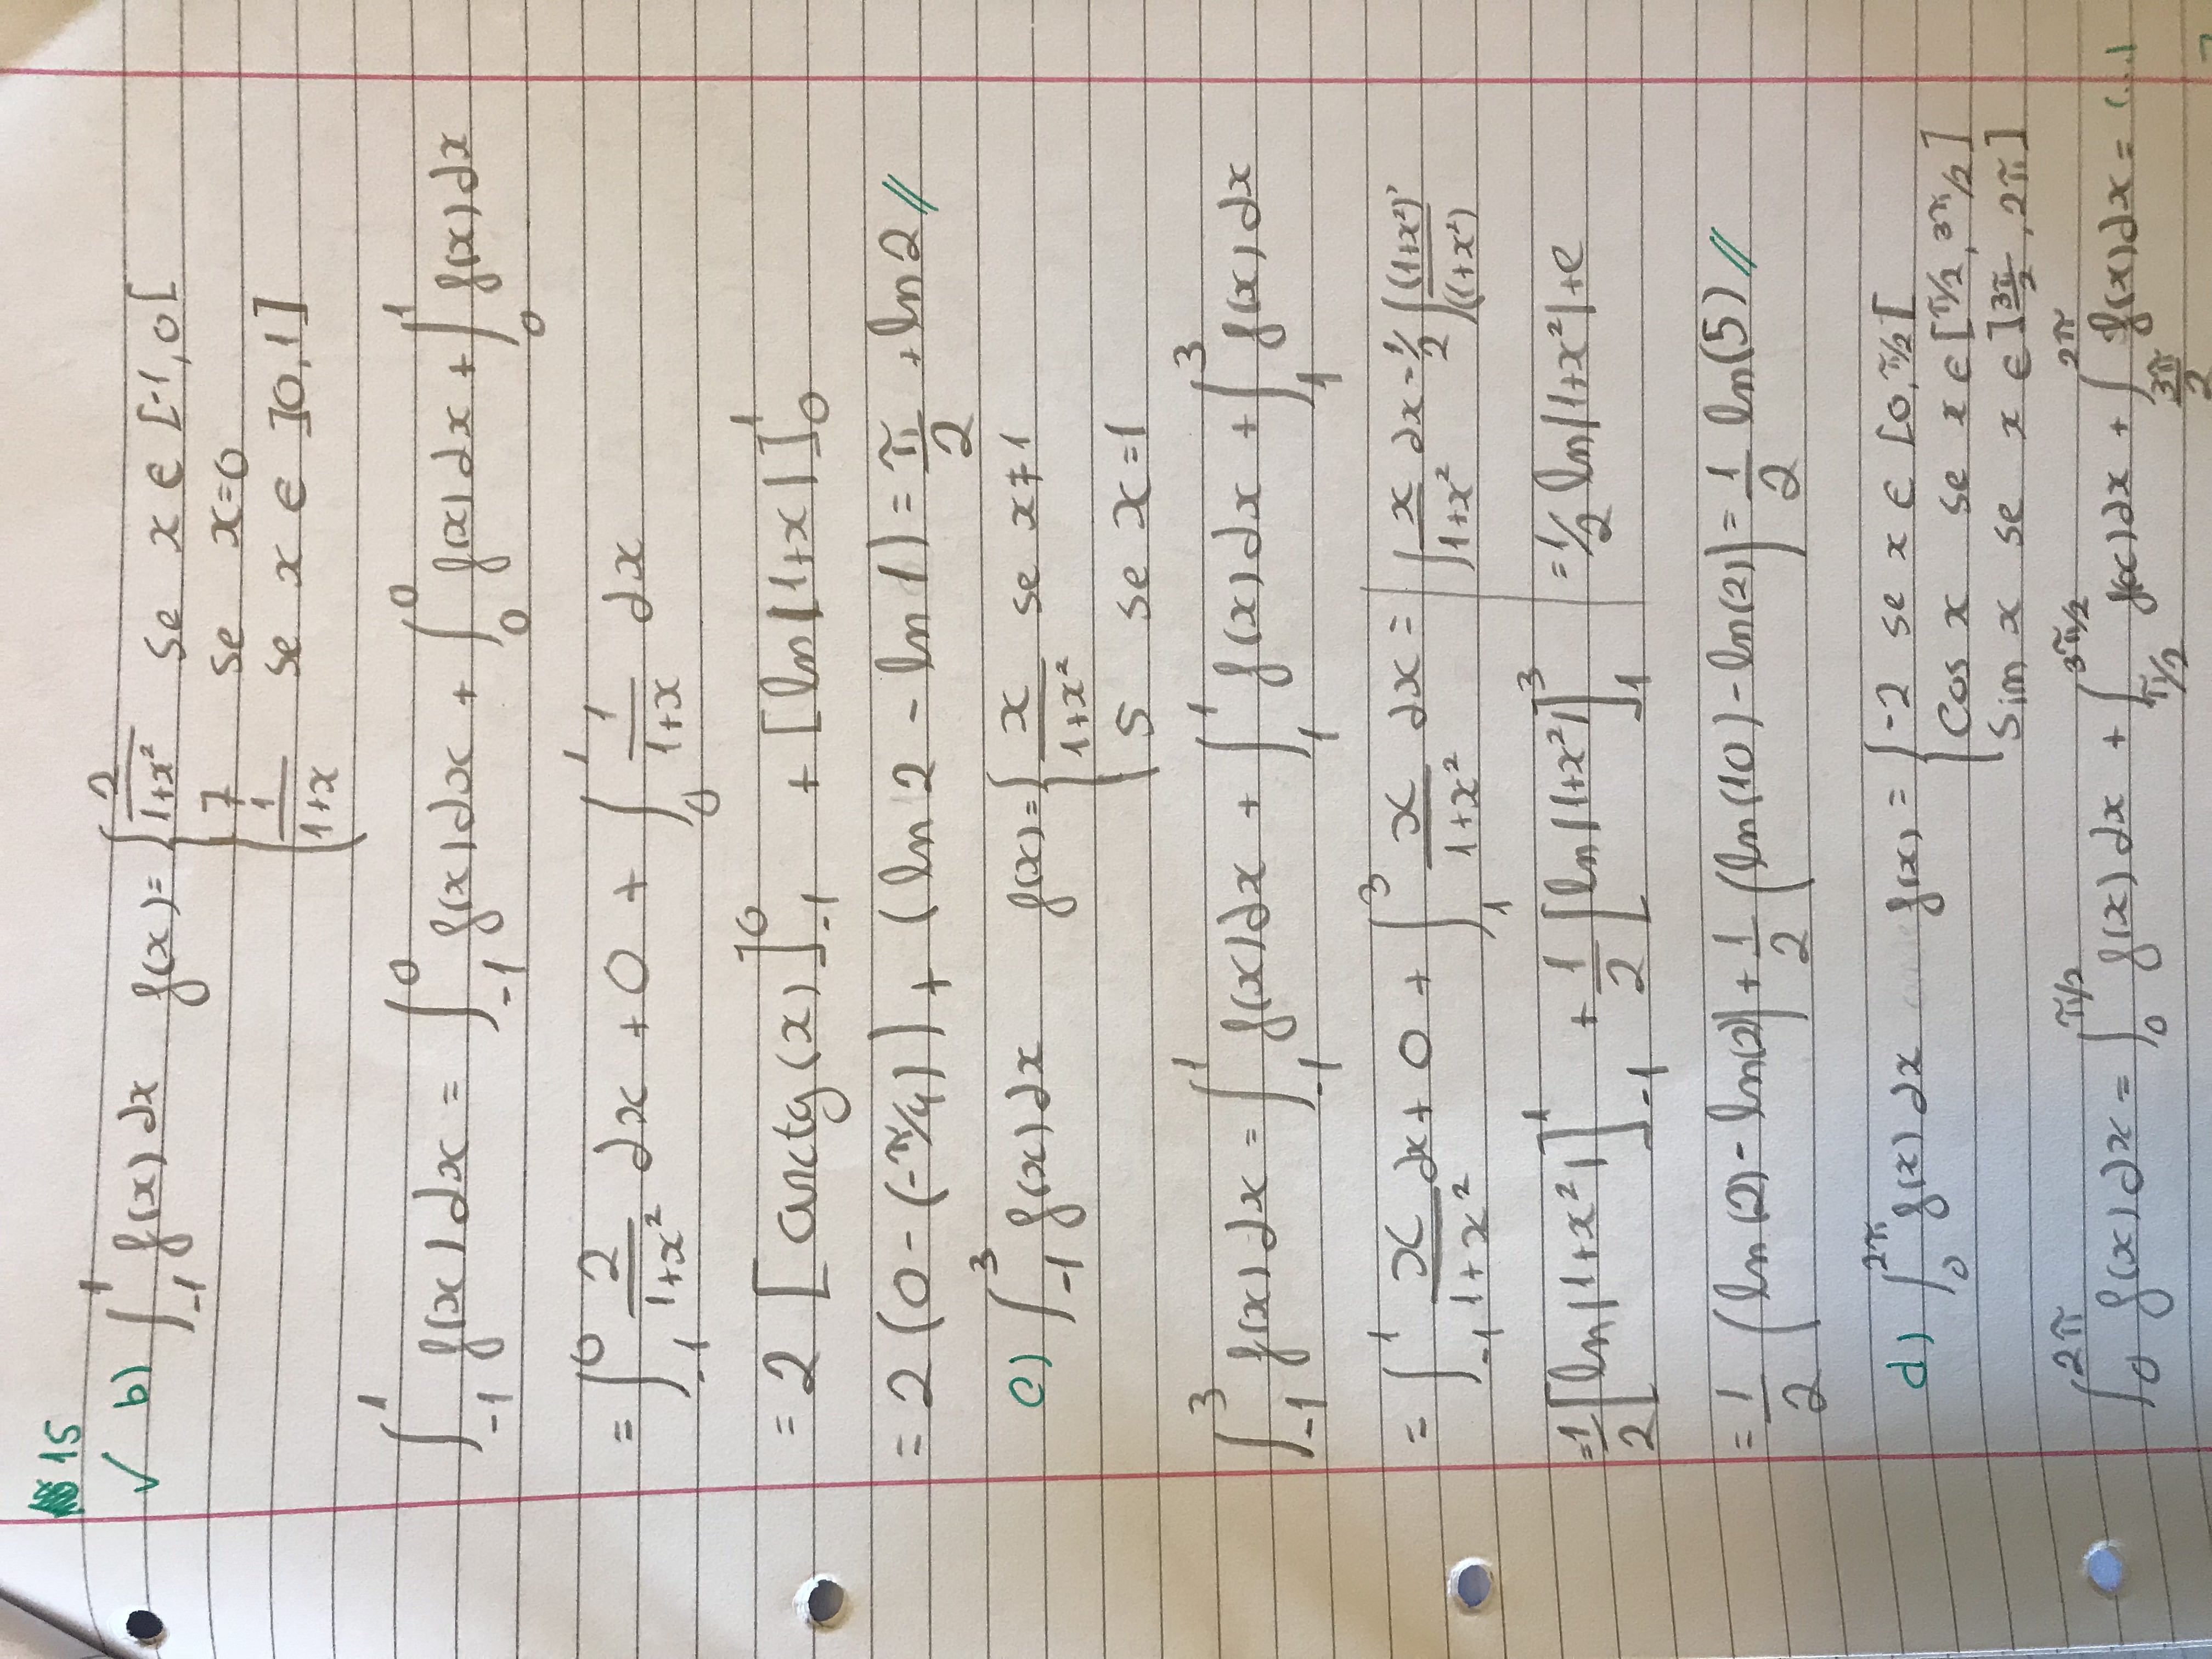 15
✓ b) ∫_{-1}^{1} f(x) dx f(x) = { 2/(1+x²) se x ∈ [-1, 0[
7 se x=0
1/(1+x) se x ∈ ]0, 1]
∫_{-1}^{1} f(x) dx = ∫_{-1}^{0} f(x) dx + ∫_{0}^{0} f(x) dx + ∫_{0}^{1} f(x) dx
= ∫_{-1}^{0} 2/(1+x²) dx + 0 + ∫_{0}^{1} 1/(1+x) dx
= 2 [arctg(x)]_{-1}^{0} + [ln|1+x|]_{0}^{1}
= 2 (0 - (-π/4)) + (ln 2 - ln 1) = π/2 + ln 2 //
c) ∫_{-1}^{3} f(x) dx f(x) = { x/(1+x²) se x ≠ 1
5 se x = 1
∫_{-1}^{3} f(x) dx = ∫_{-1}^{1} f(x) dx + ∫_{1}^{1} f(x) dx + ∫_{1}^{3} f(x) dx
= ∫_{-1}^{1} x/(1+x²) dx + 0 + ∫_{1}^{3} x/(1+x²) dx = | ∫ x/(1+x²) dx = 1/2 ∫ (1+x²)'/(1+x²)
= 1/2 [ln|1+x²|]_{-1}^{1} + 1/2 [ln|1+x²|]_{1}^{3} | = 1/2 ln|1+x²| + c
= 1/2 (ln(2) - ln(2)) + 1/2 (ln(10) - ln(2)) = 1/2 ln(5) //
d) ∫_{0}^{2π} f(x) dx f(x) = { -2 se x ∈ [0, π/2[
cos x se x ∈ [π/2, 3π/2]
sin x se x ∈ ]3π/2, 2π]
∫_{0}^{2π} f(x) dx = ∫_{0}^{π/2} f(x) dx + ∫_{π/2}^{3π/2} f(x) dx + ∫_{3π/2}^{2π} f(x) dx = (...)